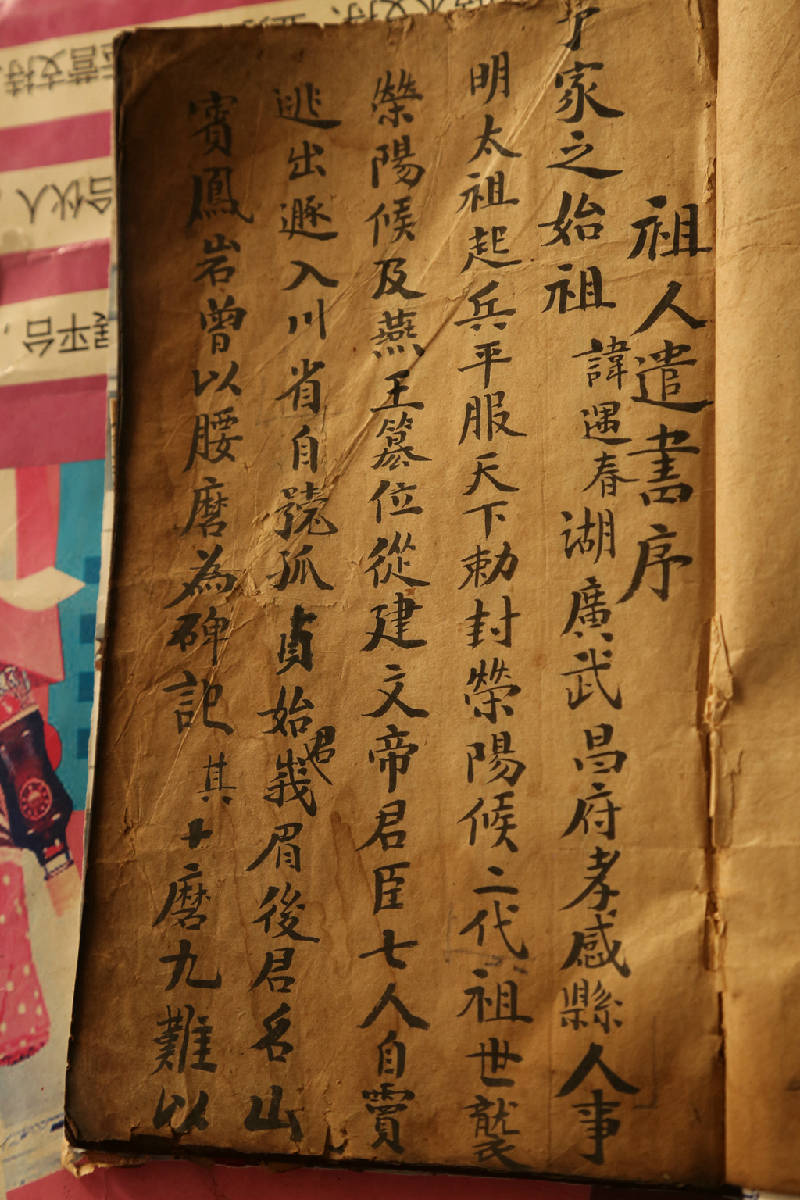 祖人遣書序
家之始祖諱遇春湖廣武昌府孝感縣人事
明太祖起兵平服天下勅封榮陽候二代祖世襲
榮陽候及燕王篡位從建文帝君臣七人自竇
逃出遯入川省自號孤貞始居峩眉後君名山
賓鳳岩曾以腰磨為碑記其十磨九難以
支持
合伙人
平台,